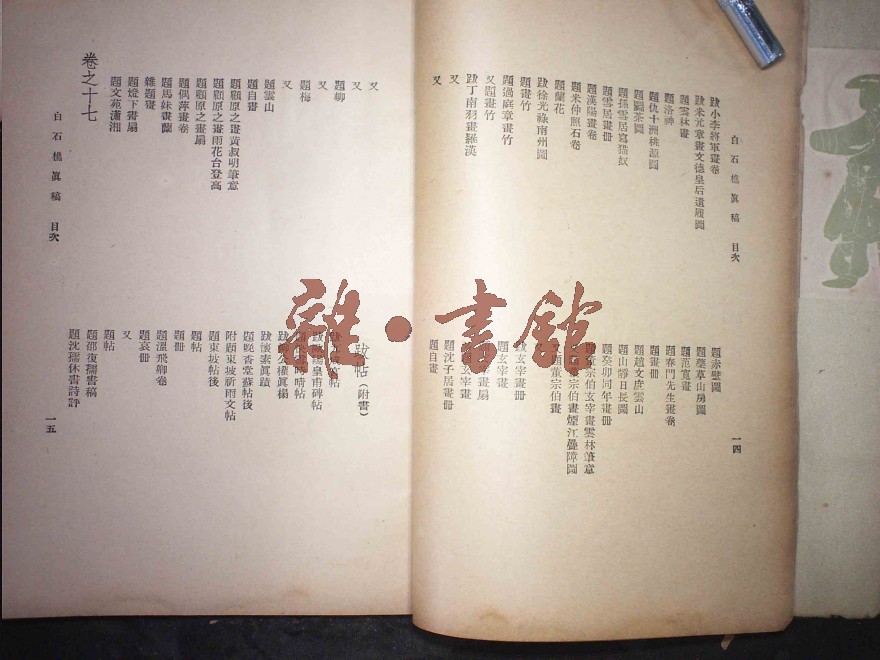 白石樵眞稿 目次
一四
跋小李將軍畫卷
跋米元章畫文德皇后遺履圖
題雲林畫
題洛神
題仇十洲桃源圖
題鬬茶圖
題孫雪居寫猫奴
題雪居畫冊
題漢陽畫卷
題米仲照石卷
題蘭花
跋徐光祿南州圖
題畫竹
題過庭章畫竹
又題畫竹
跋丁南羽畫羅漢
又
又
題赤壁圖
題蘂草山房圖
題范寬畫
題春門先生畫卷
題畫冊
題趙文度雲山
題山靜日長圖
題癸卯同年畫冊
董宗伯玄宰畫雲林筆意
董宗伯畫煙江疊障圖
題董宗伯畫
跋玄宰畫冊
題玄宰畫
畫扇
玄宰畫
題沈子居畫冊
題自畫
又
又
題柳
又
題梅
又
題雲山
題自畫
題顧原之畫黃叔明筆意
題顧原之畫雨花台登高
題顧原之畫扇
題偶萍畫卷
題馬姝畫蘭
雜題畫
題燈下畫扇
題文苑瀟湘
卷之十七
跋帖（附書）
帖
皇甫碑帖
時晴帖
跋 公權眞楊
跋懷素眞蹟
題晚香堂蘇帖後
附題東坡祈雨文帖
題東坡帖後
題帖
題冊
題溫飛卿卷
題哀冊
又
題帖
題邵復孺書稿
題沈孺休書詩評
白石樵眞稿 目次
一五
雜·書館